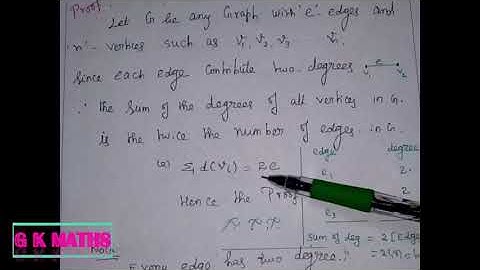 Proof
Let G be any Graph with 'e' edges and
'n' vertices such as V1, V2, V3 ... Vi.
Since each edge Contribute two degrees
V1 e V2
∴ the Sum of the degrees of all vertices in G.
is the twice the number of edges in G.
(ie) Σ d(Vi) = 2e
Hence the Proof
edge degree
e1 2
2
e3
sum of deg = 2[Edge
G K MATHS
Note:
Every edge has two degree.